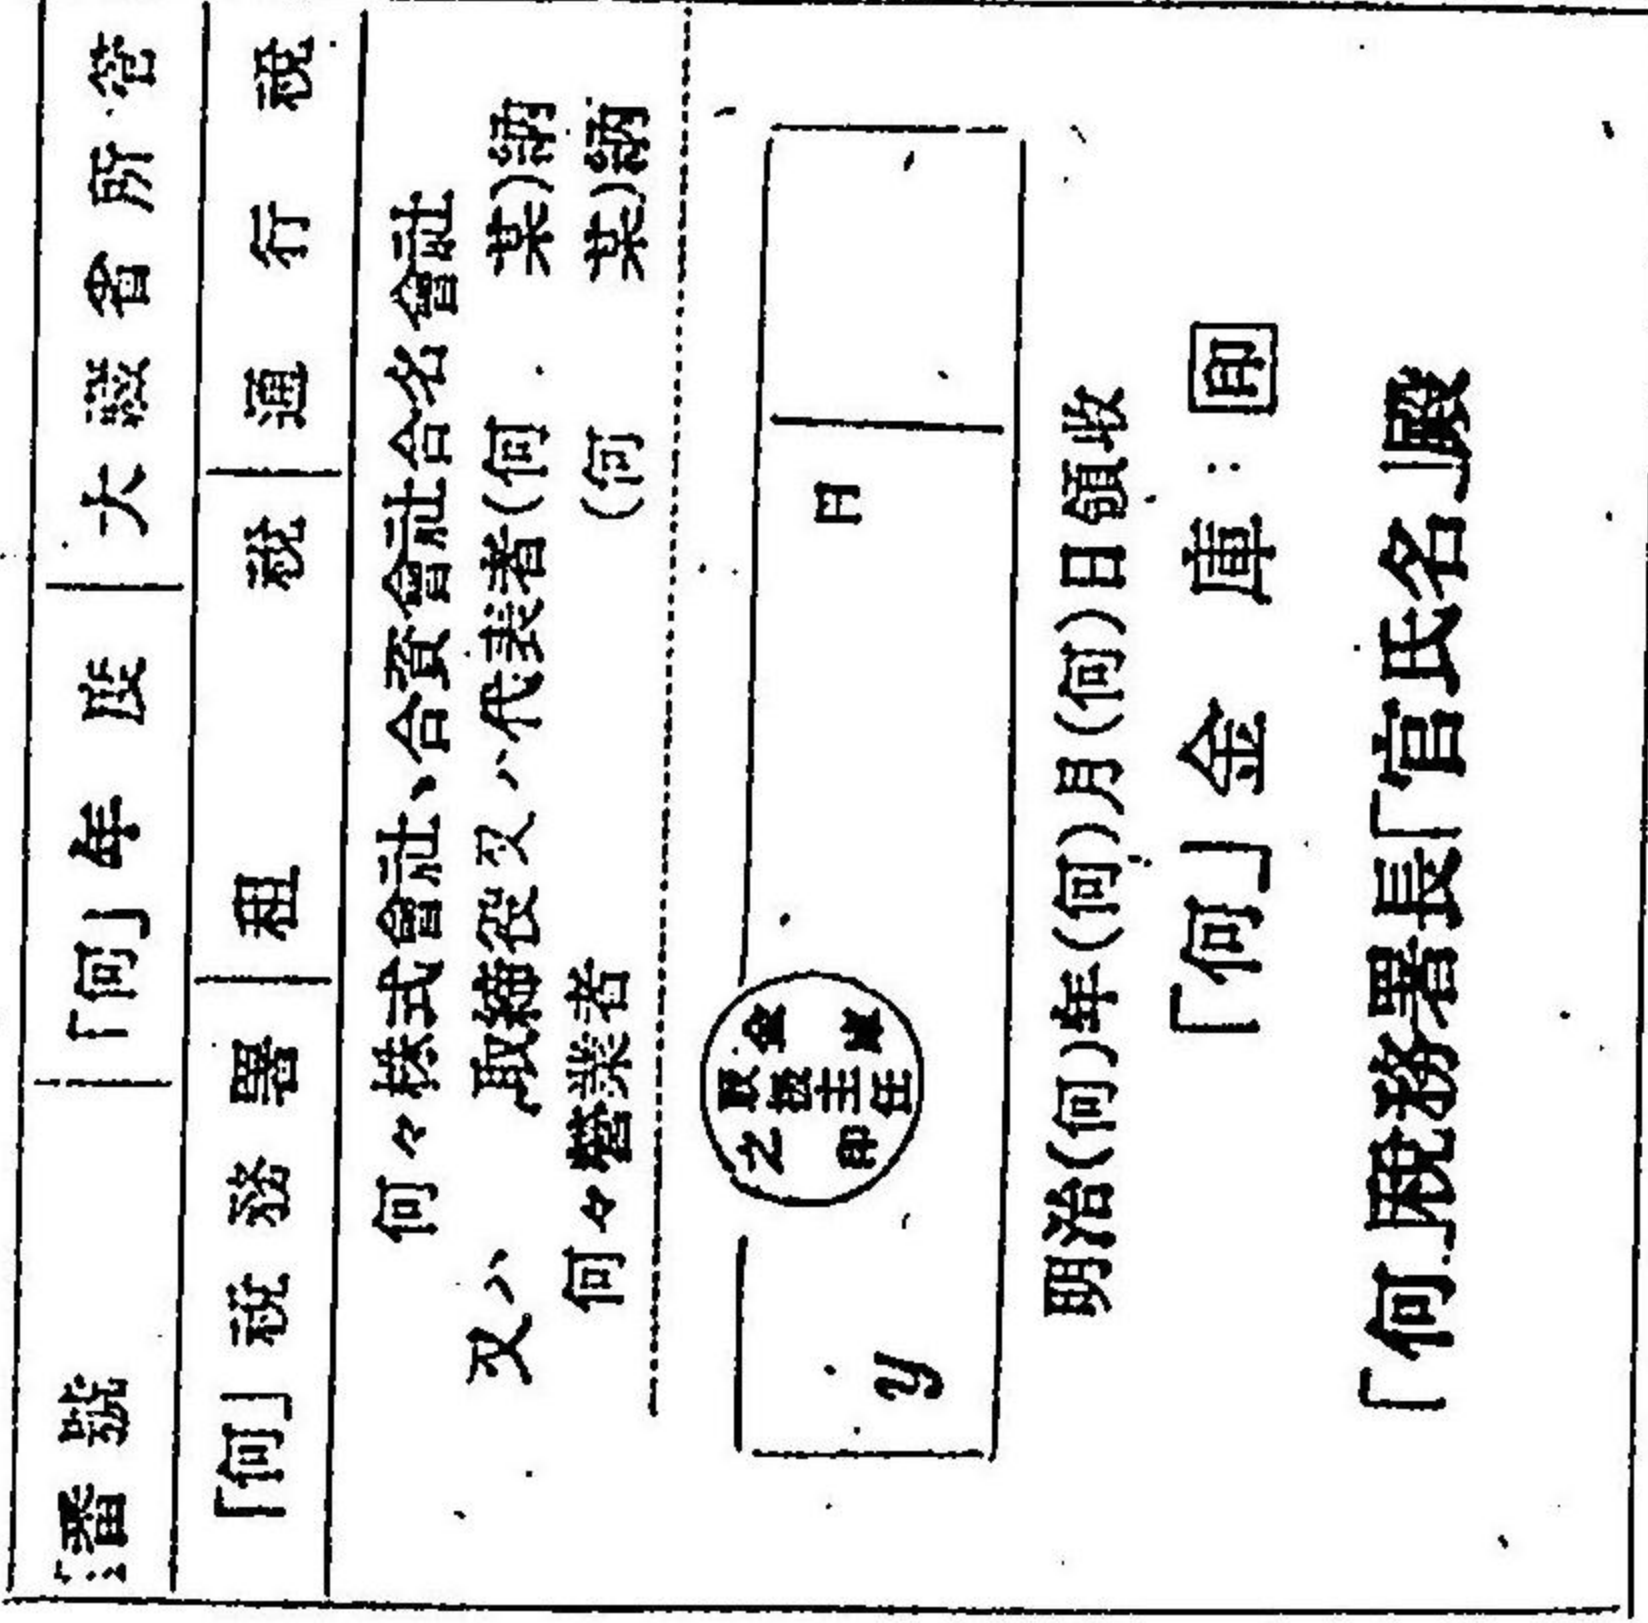 番號 「何」年度 大藏省所管
「何」税務署 租税 通行税
何々株式會社、合資會社合名會社
又ハ 取締役又ハ代表者(何 某)納
何々營業者 (何 某)納
y 円
金庫
取扱主任
之印
明治(何)年(何)月(何)日領收
「何」金庫 印
「何」税務署長「官氏名」殿